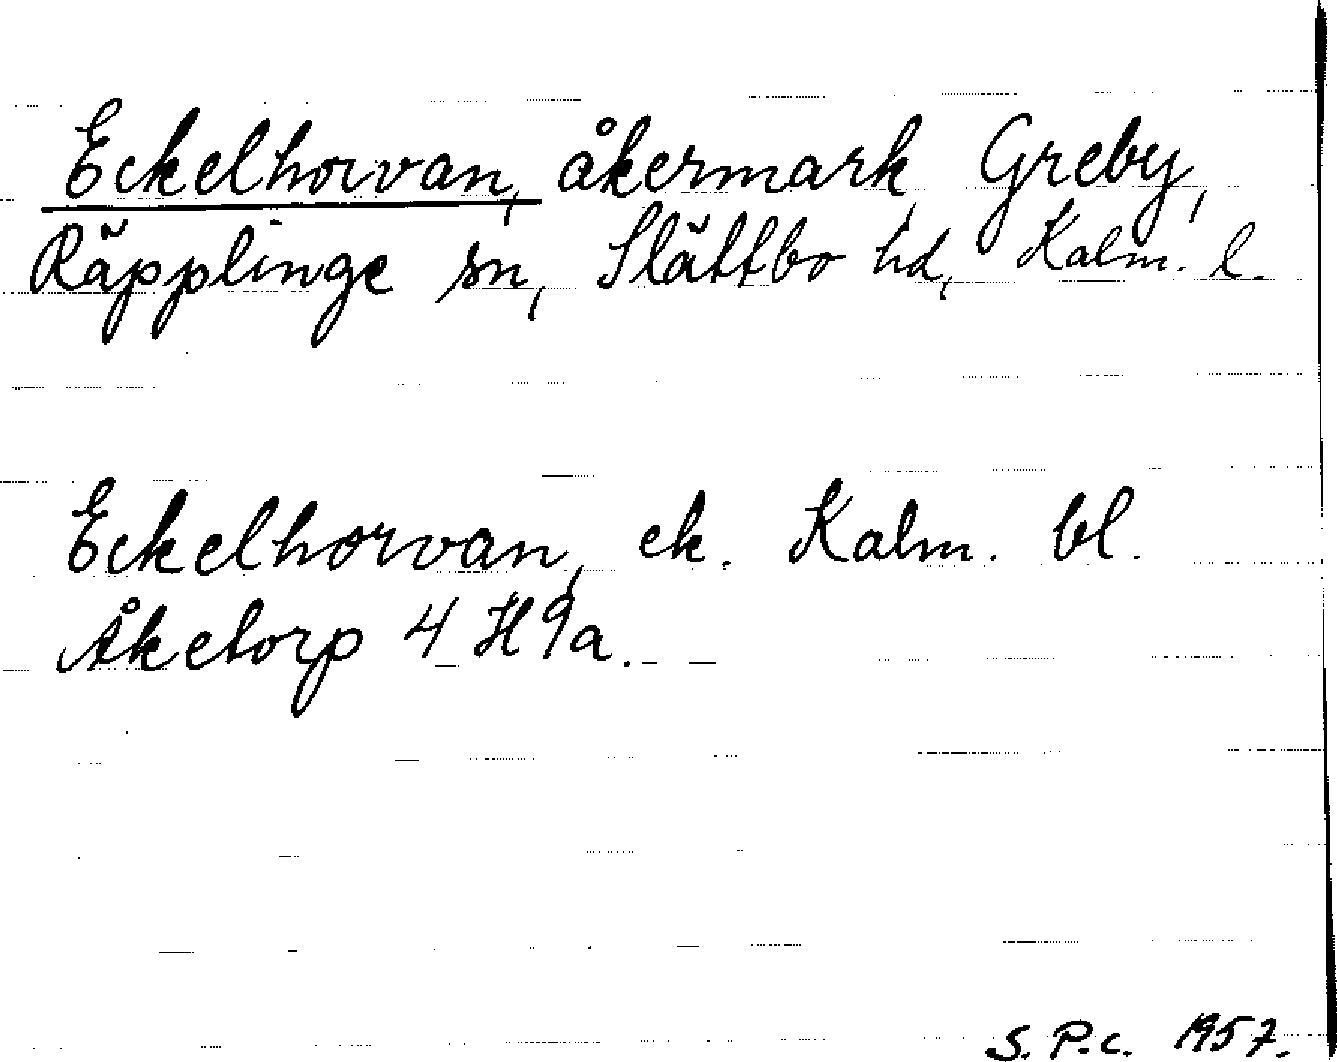 Eckelhorvan, åkermark, Greby,
Räpplinge sn, Slättbo hd, Kalm. l.
Eckelhorvan, ek. Kalm. bl.
Åketorp 4 H 9a.
S. P.c. 1957.